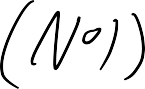 (N°1)